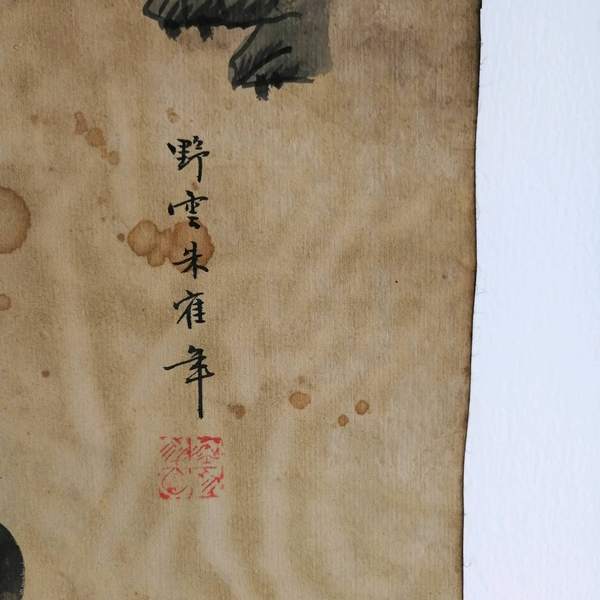 野雲朱寉年